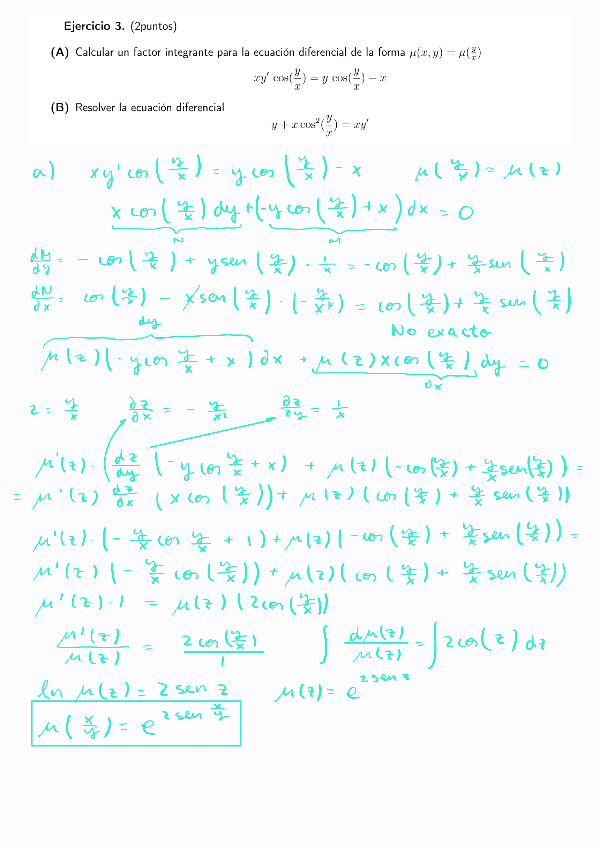 Ejercicio 3. (2puntos)
(A) Calcular un factor integrante para la ecuación diferencial de la forma μ(x, y) = μ(y/x)
xy′ cos(y/x) = y cos(y/x) − x
(B) Resolver la ecuación diferencial
y + x cos²(y/x) = xy′
a) xy' cos(y/x) = y cos(y/x) - x μ(y/x) = μ(z)
x cos(y/x) dy + (-y cos(y/x) + x) dx = 0
N M
dM/dy = - cos(y/x) + y sen(y/x) · 1/x = -cos(y/x) + y/x sen(y/x)
dN/dx = cos(y/x) - x sen(y/x) · (-y/x²) = cos(y/x) + y/x sen(y/x)
dy No exacto
μ(z)(-y cos y/x + x) dx + μ(z) x cos(y/x) dy = 0
dx
z = y/x ∂z/∂x = - y/x² ∂z/∂y = 1/x
μ'(z) · (dz/dy (-y cos y/x + x) + μ(z)(-cos(y/x) + y/x sen(y/x)) =
= μ'(z) dz/∂x (x cos(y/x)) + μ(z)(cos(y/x) + y/x sen(y/x))
μ'(z) · (- y/x cos y/x + 1) + μ(z)(-cos(y/x) + y/x sen(y/x)) =
μ'(z) (- y/x cos(y/x)) + μ(z)(cos(y/x) + y/x sen(y/x))
μ'(z) · 1 = μ(z)(2cos(y/x))
μ'(z)/μ(z) = 2cos(y/x)/1 ∫ dμ(z)/μ(z) = ∫ 2cos(z) dz
ln μ(z) = 2 sen z μ(z) = e^(2 sen z)
μ(x/y) = e^(2 sen x/y)